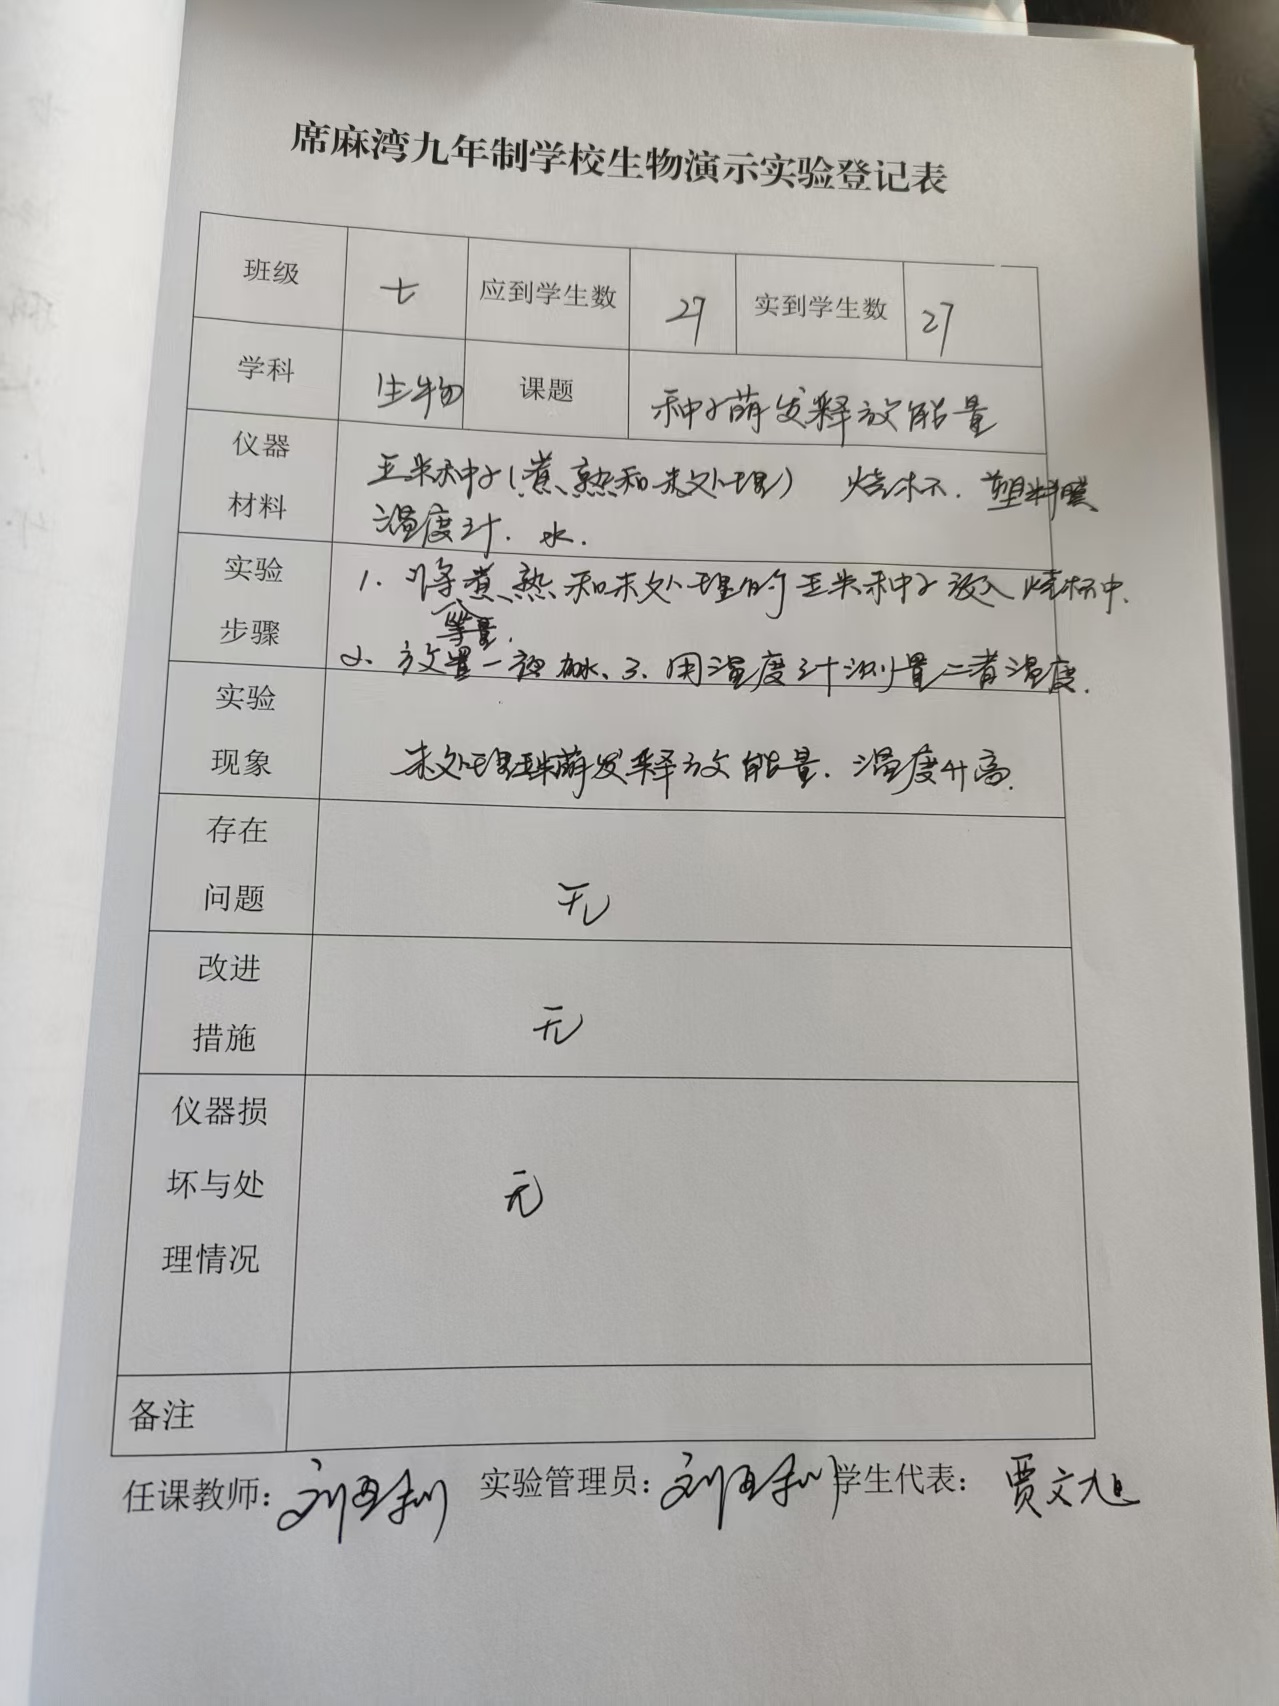 席麻湾九年制学校生物演示实验登记表
班级 七 应到学生数 27 实到学生数 27
学科 生物 课题 种子萌发释放能量
仪器 玉米种子(煮熟和未处理) 烧杯. 塑料膜
材料 温度计. 水.
实验 1. 将煮熟和未处理的玉米种子放入烧杯中.
等量.
步骤 2. 放置一夜 加水. 3. 用温度计测量二者温度.
实验
现象 未处理玉米萌发释放能量. 温度升高.
存在
问题 无
改进
措施 无
仪器损
坏与处 无
理情况
备注
任课教师: 刘 利 实验管理员: 刘 利 学生代表: 贾文旭